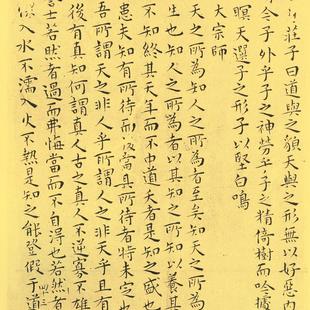 莊子曰道與之貌天與之形無以好惡內
今子外乎子之神勞乎子之精倚樹而吟據
瞑天選子之形子以堅白鳴
大宗師
天之所為知人之所為者至矣知天之所
生也知人之所為者以其知之所知以養其
不知終其天年而不中道夭者是知之盛也
患夫知有所待而後當其所待者特未定也
吾所謂天之非人乎所謂人之非天乎且有
後有真知何謂真人古之真人不逆寡不雄
士若然者過而弗悔當而不自得也若然者
入水不濡入火不熱是知之能登假于道
四十三